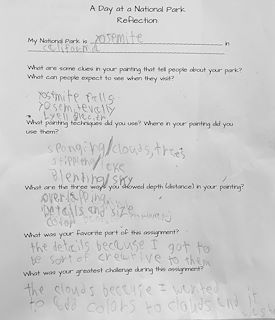 A Day at a National Park
Reflection
My National Park is yosemite in
california
What are some clues in your painting that tell people about your park?
What can people expect to see when they visit?
yostmite falls
yosemitevally
Lyell
What painting techniques did you use? Where in your painting did you
use them?
sponging/clouds, trees
Blenting/sky
What are the three ways you showed depth (distance) in your painting?
overlapping
Details and size
color
What was your favorite part of this assignment?
the details because I got to
be sort of creative to them
What was your greatest challenge during this assignment?
the clouds because I wanted
to add colors to clouds and it